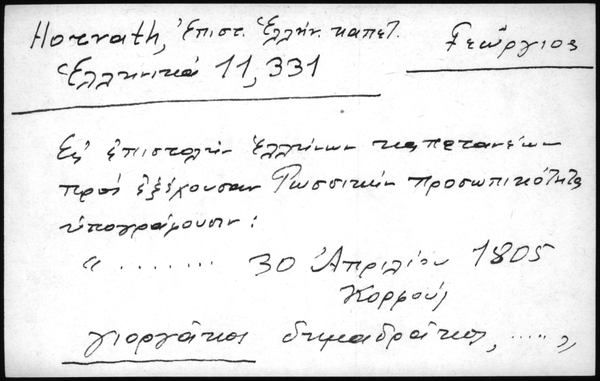 Horvath, Ἐπιστ. Ἑλλήν. καπετ. Γεώργιος
Ἑλληνικά 11, 331
Εἰς ἐπιστολήν Ἑλλήνων καπετανέων
πρός ἐξέχουσαν Ρωσσικήν προσωπικότητα
ὑπογράφουσιν:
" ........ 30 Ἀπριλίου 1805
Κορφούς
γιοργάκις δημαδράκις, ..... "